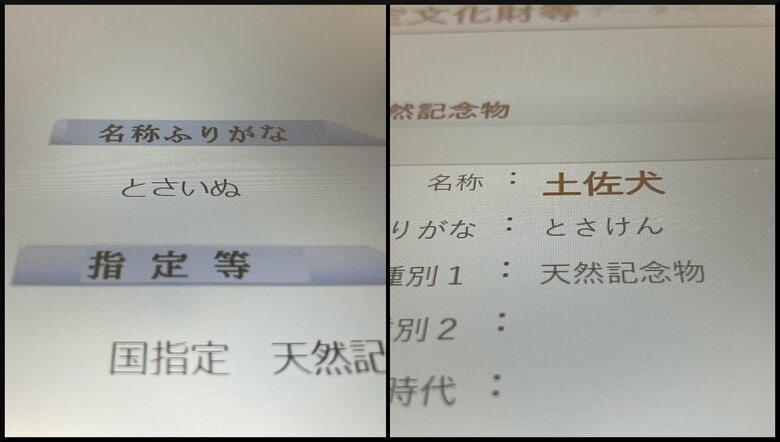 名称ふりがな
とさいぬ
指定等
国指定 天然記
文化財等データベース
然記念物
名称 : 土佐犬
りがな : とさけん
種別1 : 天然記念物
別2 :
時代 :